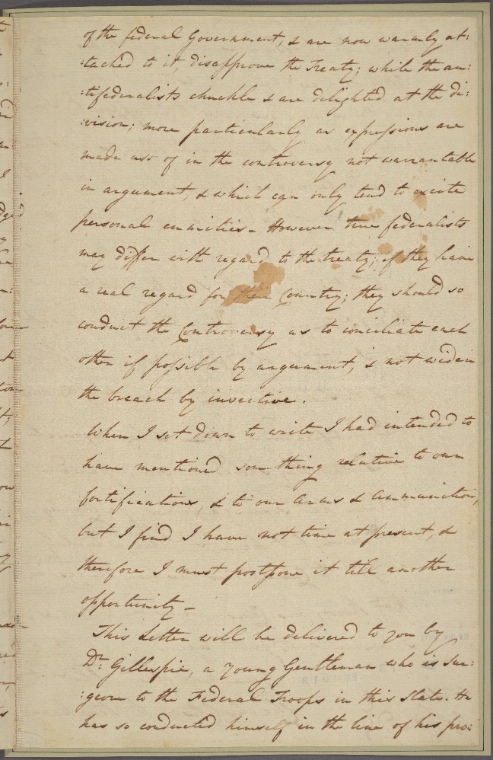 of the federal Government, & are now warmly at:
:tached to it, disapprove the Treaty; while the an:
:tifederalists chuckle & are delighted at the di:
:vision; more particularly as expressions are
made use of in the controversy not warrantable
in argument, & which can only tend to excite
personal enmities. However true federalists
may differ with regard to the treaty; if they have
a real regard for their Country; they should so
conduct the Controversy as to conciliate each
other if possible by argument, & not widen
the breach by invective.
When I set down to write I had intended to
have mentioned some thing relative to our
fortifications, & to our Arms & Ammunition,
but I find I have not time at present, &
therefore I must postpone it till another
opportunity—
This Letter will be delivered to you by
Dr. Gillespie, a young Gentleman who is Sur:
:geon to the Federal Troops in this State. He
has so conducted himself in the line of his pro: